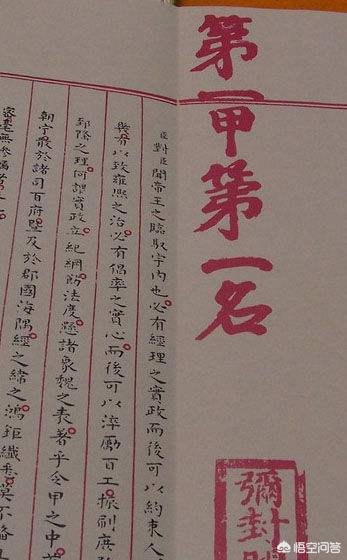 第一甲第一名
彌封
臣對臣聞帝王之臨馭宇內也必有經理之實政而後可以約束人
有以致雍熙之治必有倡率之實心而後可以淬勵百工振刷庶
郅隆之理何謂實政立紀綱飭法度懸諸象魏之表著乎令甲之中首
朝宁散於諸司百府暨及於郡國海隅經之緯之鴻鉅纖悉莫不備
密毫無滲漏者是
悟空问答